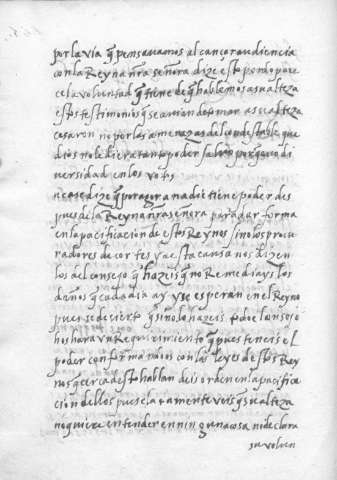 por la via q̃ pensavamos alcançar audiencia
con la Reyna nr̃a señora dize esto pondo pare
ce la voluntad q̃ tiene de q̃ hablemos a su alteza
estos testimonios q̃ se avien de tomar a su alteza
cesaron no por las amenazas del condestable que
dios no le diera tanto poder salvo porque vo di
versidad en los votos
ne ase dize q̃ por agora nadie tiene poder des
pues de la Reyna nr̃a señora para dar forma
en la pacificacion de estos Reynos sino los procu
radores de cortes y a esta causa nos dizen
los del consejo q̃ hazeis q̃ no Remediays los
daños q̃ cada dia ay y se esperan en el Reyno
pues sed cierto q̃ si no lo hazeis todo el consejo
hos hara un Requirimiento q̃ pues teneis el
poder conforma ndo os con las leyes destos Rey
nos q̃ cerca desto hablan deis orden en la pacifica
cion dellos pues claramente veis q̃ su alteza
no quiere entender en ninguna cosa ni declara
su volun